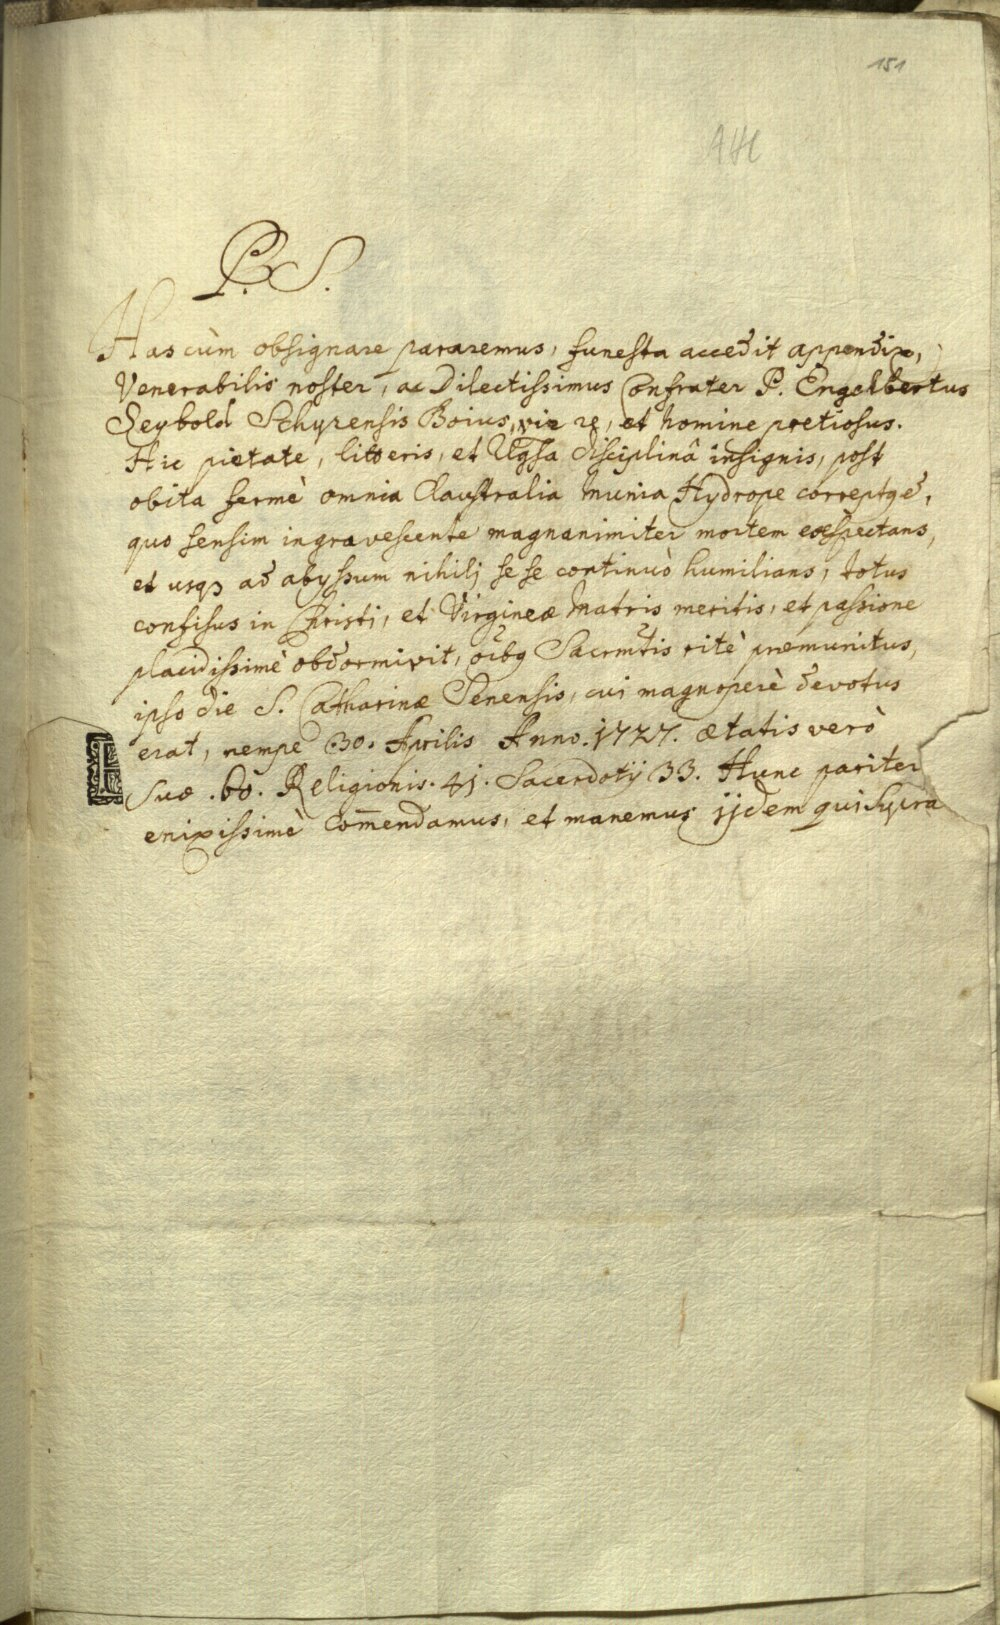 151
P. S.
Has cùm obsignare pararemus, funesta accedit appendix,
Venerabilis noster, ac Dilectissimus Confrater P. Engelbertus
Seybold Schyrensis Boius, vir re, et homine pretiosus.
Hic pietate, litteris, et disciplinâ insignis, post
obita fermè omnia Claustralia Munia Hydrope correptq̃
quo sensim ingravescente magnanimiter mortem exspectans,
et usq3 ad abyssum nihilj sese continuò humilians, totus
confisus in Christi, et Virgineæ Matris meritis, et passione
placidissimè obdormivit, oĩbq Sacrm̃tis ritè præmunitus,
ipso die S. Catharinæ Senensis, cui magnoperè devotus
erat, nempe 30. Aprilis Anno. 1727. ætatis verò
Suæ . 60. Religionis. 41. Sacerdotij 33. Hunc pariter
enixissimè Com̃endamus, et manemus ijdem qui Supra